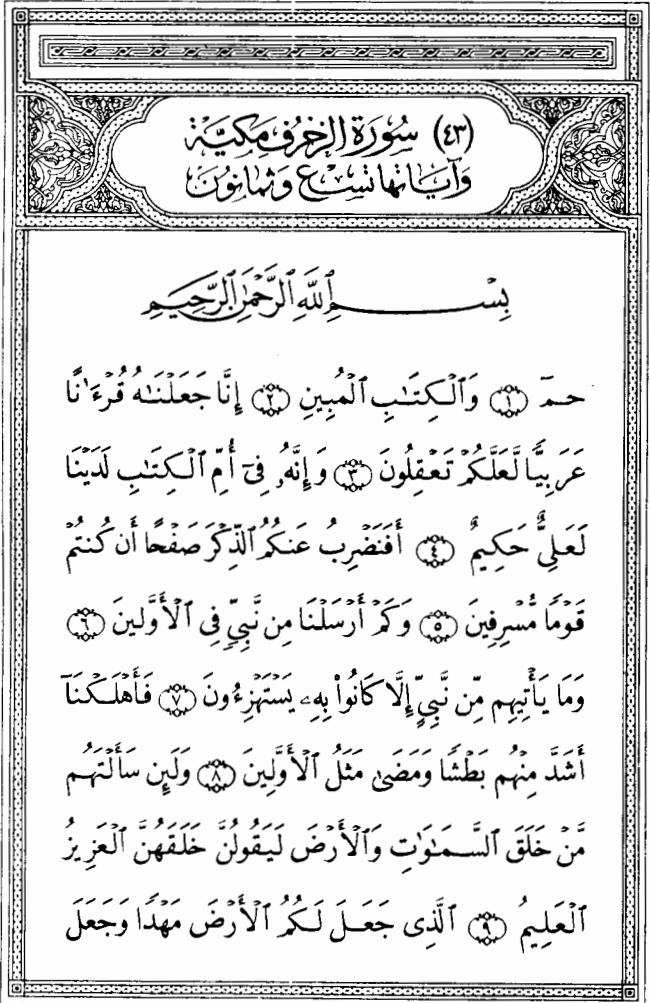 (٤٣) سُورَة الزخرُف مَكيَّة
وَآيَاتها تسْع وَثمانونَ
بِسْمِ ٱللَّهِ ٱلرَّحْمَٰنِ ٱلرَّحِيمِ
حمٓ ١ وَٱلْكِتَٰبِ ٱلْمُبِينِ ٢ إِنَّا جَعَلْنَٰهُ قُرْءَٰنًا
عَرَبِيًّا لَّعَلَّكُمْ تَعْقِلُونَ ٣ وَإِنَّهُۥ فِىٓ أُمِّ ٱلْكِتَٰبِ لَدَيْنَا
لَعَلِىٌّ حَكِيمٌ ٤ أَفَنَضْرِبُ عَنكُمُ ٱلذِّكْرَ صَفْحًا أَن كُنتُمْ
قَوْمًا مُّسْرِفِينَ ٥ وَكَمْ أَرْسَلْنَا مِن نَّبِىٍّ فِى ٱلْأَوَّلِينَ ٦
وَمَا يَأْتِيهِم مِّن نَّبِىٍّ إِلَّا كَانُوا۟ بِهِۦ يَسْتَهْزِءُونَ ٧ فَأَهْلَكْنَآ
أَشَدَّ مِنْهُم بَطْشًا وَمَضَىٰ مَثَلُ ٱلْأَوَّلِينَ ٨ وَلَئِن سَأَلْتَهُم
مَّنْ خَلَقَ ٱلسَّمَٰوَٰتِ وَٱلْأَرْضَ لَيَقُولُنَّ خَلَقَهُنَّ ٱلْعَزِيزُ
ٱلْعَلِيمُ ٩ ٱلَّذِى جَعَلَ لَكُمُ ٱلْأَرْضَ مَهْدًا وَجَعَلَ